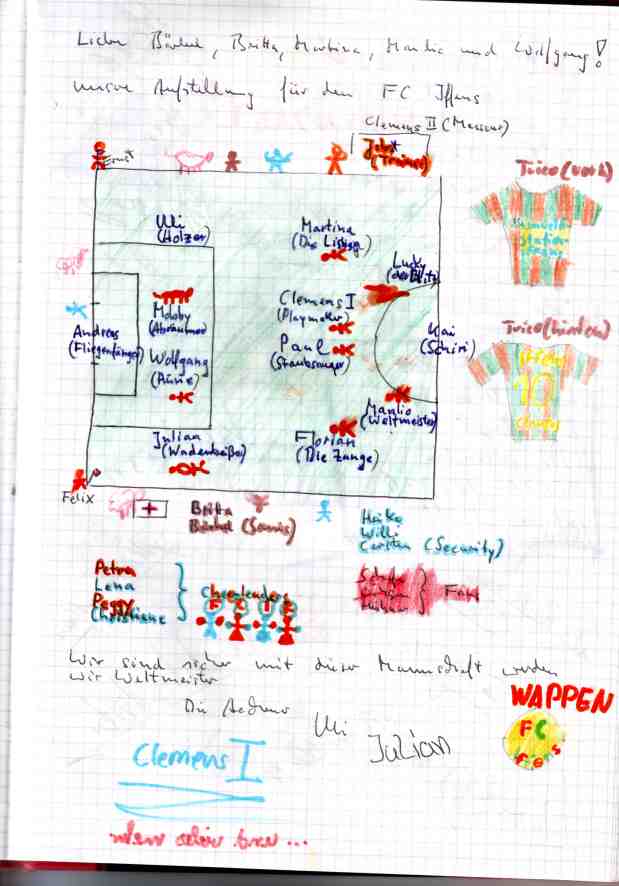 Liebe Bärbel, Britta, Martina, Manlio und Wolfgang!
unsre Aufstellung für den FC
Clemens II (Masseur)
(Trainer)
Trico (vorn)
Uli
(Holzer)
Martina
(Die Listige)
Lucky
(der Blitz)
Clemens I
(Playmaker)
Moloby
(Abräumer)
Andreas
(Fliegenfänger)
Kai
(Schiri)
Trico (hinten)
Paul
(Staubsauger)
Wolfgang
10
Manlio
(Weltmeister)
Julian
(Wadenbeißer)
Florian
(Die Zange)
Felix
Britta
Bärbel (Sannis)
Heike
Willi
Carsten (Security)
Petra
Lena
Peggy
Christiane
Cheerleaders
Wir sind sicher mit dieser Mannschaft werden
wir Weltmeister
WAPPEN
FC
Die
Uli
Julian
Clemens I